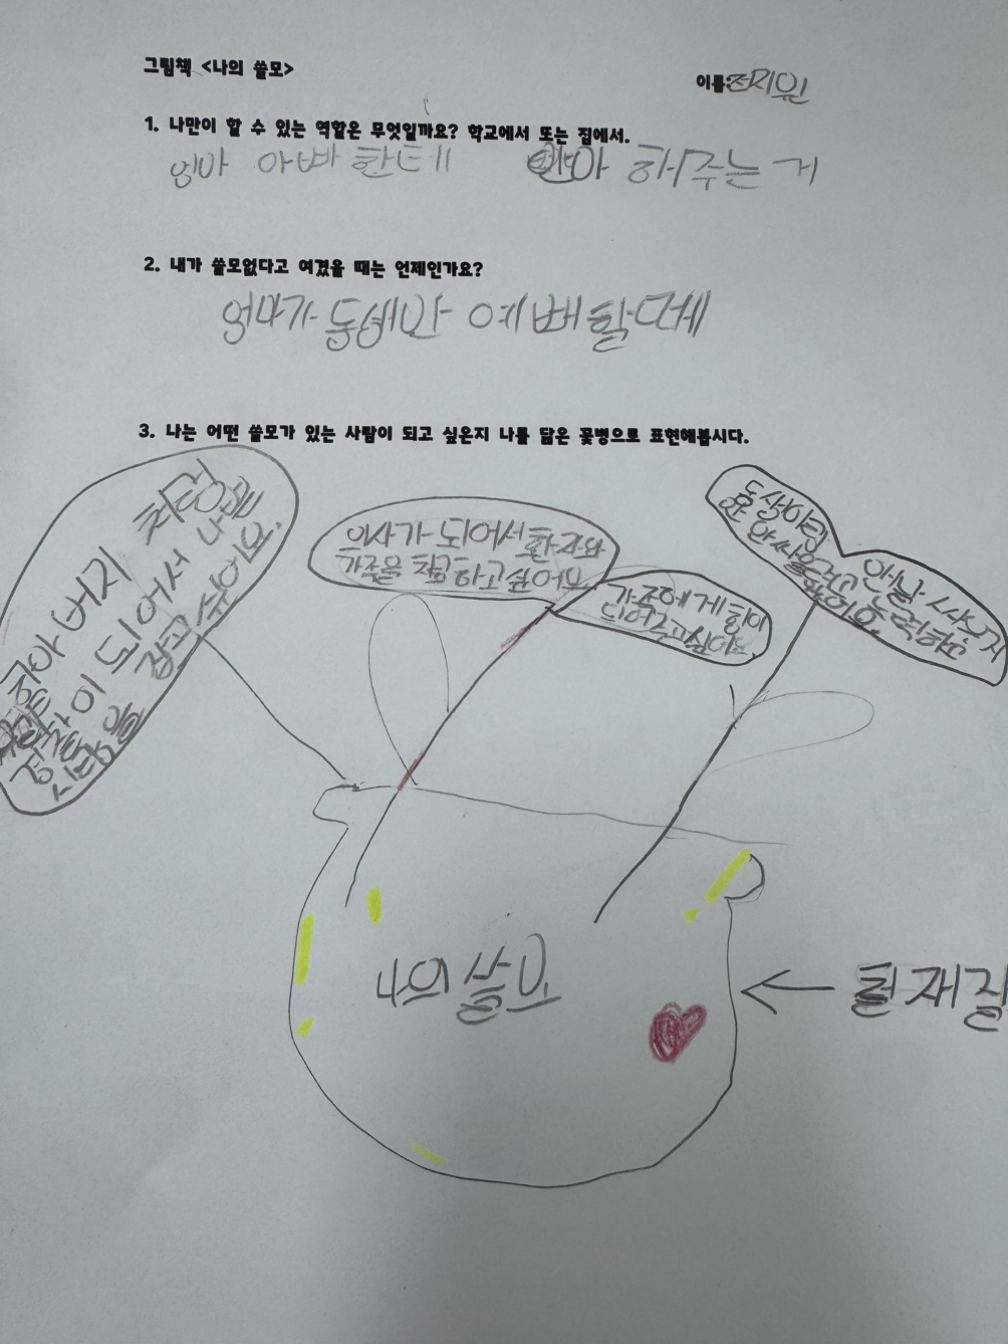 그림책 <나의 쓸모>
이름: 조지원
1. 나만이 할 수 있는 역할은 무엇일까요? 학교에서 또는 집에서.
엄마 아빠 한테 안아 허주는 거
2. 내가 쓸모없다고 여겼을 때는 언제인가요?
엄마가 동생만 예뻐할때
3. 나는 어떤 쓸모가 있는 사람이 되고 싶은지 나를 닮은 꽃병으로 표현해봅시다.
할아버지 처럼
경찰이 되어서 나쁜
사람을 잡고 싶어요.
의사가 되어서 환자와
가족을 치료하고싶어요
가족에게 힘이
되어주고싶어요.
동생이랑
안 싸울려고 노력하고
싶어요.
나의 쓸모
← 털 재질